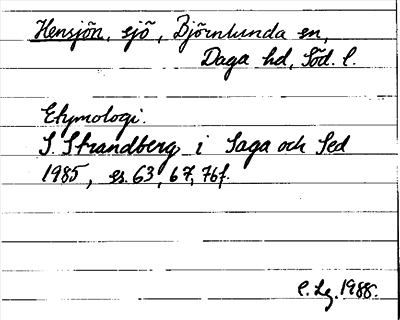 Hensjön, sjö, Björnlunda sn,
Daga hd, Söd. l.
Etymologi.
S. Strandberg i Saga och Sed
1985, ss. 63, 67, 76f.
1988.